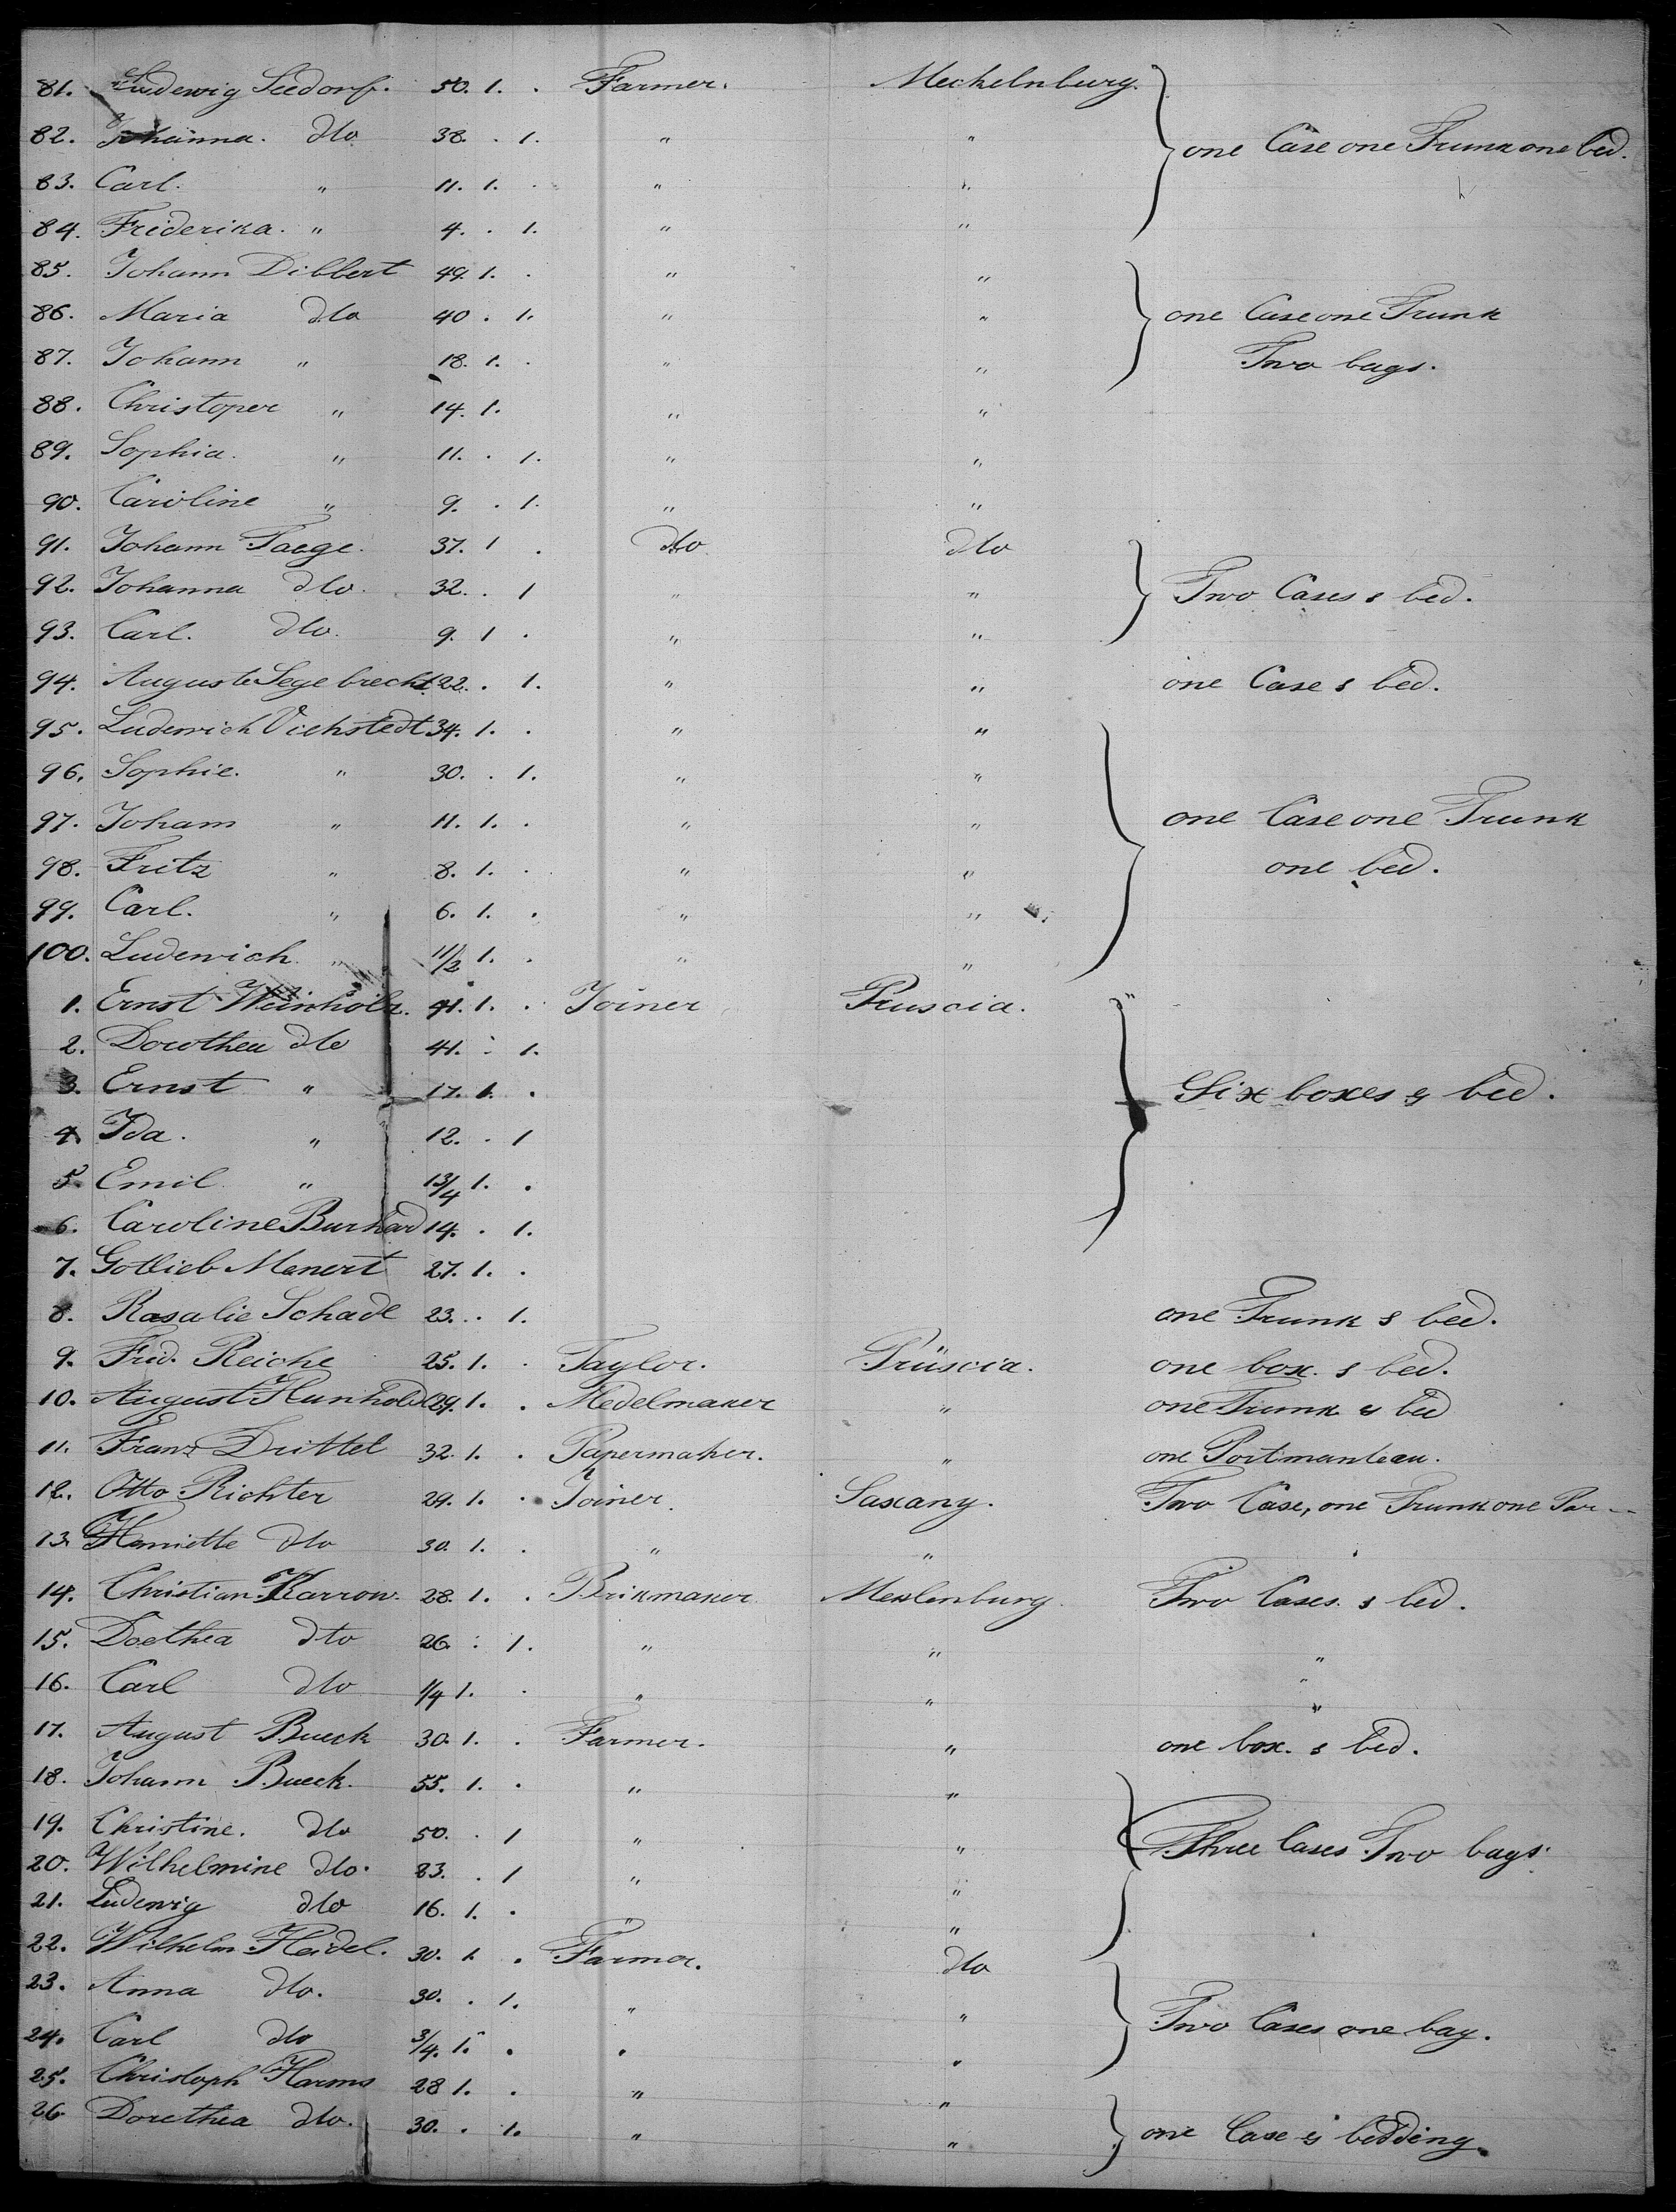 81. Ludewig Seedorf. 50. 1. . Farmer. Mechelnburg.
82. Johanna. dto 38. . 1. " " one Case one Trunk one bed.
83. Carl. " 11. 1. . " "
84. Friderika. " 4. . 1. " "
85. Johann Dibbert 49. 1. . " "
86. Maria dto 40 . 1. " " one Case one Trunk
87. Johann " 18. 1. . " " Two bags.
88. Christoper " 14. 1. " "
89. Sophia. " 11. . 1. " "
90. Caroline " 9. . 1. " "
91. Johann Taege. 37. 1 . dto dto
92. Johanna dto. 32. . 1 " " Two Cases & bed.
93. Carl. dto. 9. 1 . " "
94. Auguste Segebrecht 22. . 1. " " one Case & bed.
95. Ludewich Vichstedt 34. 1. . " "
96. Sophie. " 30. . 1. " "
97. Joham " 11. 1. . " " one Case one Trunk
98. Fritz " 8. 1. . " " one bed.
99. Carl. " 6. 1. . " "
100. Ludewich " 11/2 1. . " "
1. Ernst Weinholz. 41. 1. . Joiner Pruscia.
2. Dorothea dto 41. . 1.
3. Ernst " 17. 1. . Six boxes & bed.
4. Ida. " 12. . 1
5. Emil " 13/4 1. .
6. Caroline Burhard 14. . 1.
7. Gottlieb Manert 27. 1. .
8. Rosalie Schade 23. . 1. one Trunk & bed.
9. Frid. Reiche 25. 1. . Taylor. Prüscia. one box. & bed.
10. August Hunhold 29. 1. . Medelmaker " one Trunk & bed
11. Franz Drittel 32. 1. . Papermaker. " one Portmanteau.
12. Otto Richter 29. 1. . Joiner. Saxany. Two Case, one Trunk one Por--
13. Henriette dto 30. 1. . " "
14. Christian Karrow. 28. 1. . Brikmaker Meklenburg. Two Cases. & bed.
15. Doethea dto 26. . 1. " " "
16. Carl dto 1/4 1. . " " "
17. August Bueck 30. 1. . Farmer. " one box. & bed.
18. Johann Bueck. 55. 1. . " "
19. Christine. dto 50. . 1 " " Three Cases Two bags.
20. Wilhelmine dto. 23. . 1 " "
21. Ludewig dto 16. 1. . " "
22. Wilhelm Heidel. 30. 1. . Farmer. dto
23. Anna dto. 30. . 1. " " Two Cases one bag.
24. Carl dto 3/4. 1. . " "
25. Christoph Harms 28 1. . " "
26 Dorethea dto. 30. . 1. " " one Case & bedding.